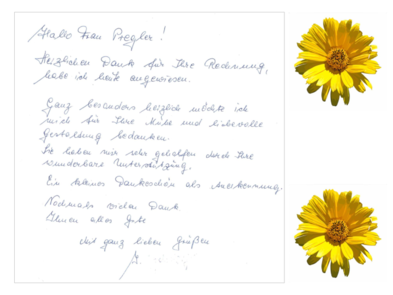 Hallo Frau Priegler!
Herzlichen Dank für Ihre Rechnung,
habe ich heute angewiesen.
Ganz besonders herzlich möchte ich
mich für Ihre Mühe und liebevolle
Gestaltung bedanken.
Sie haben mir sehr geholfen durch Ihre
wunderbare Unterstützung.
Ein kleines Dankeschön als Anerkennung.
Nochmals vielen Dank
Ihnen alles Gute
Mit ganz lieben Grüßen